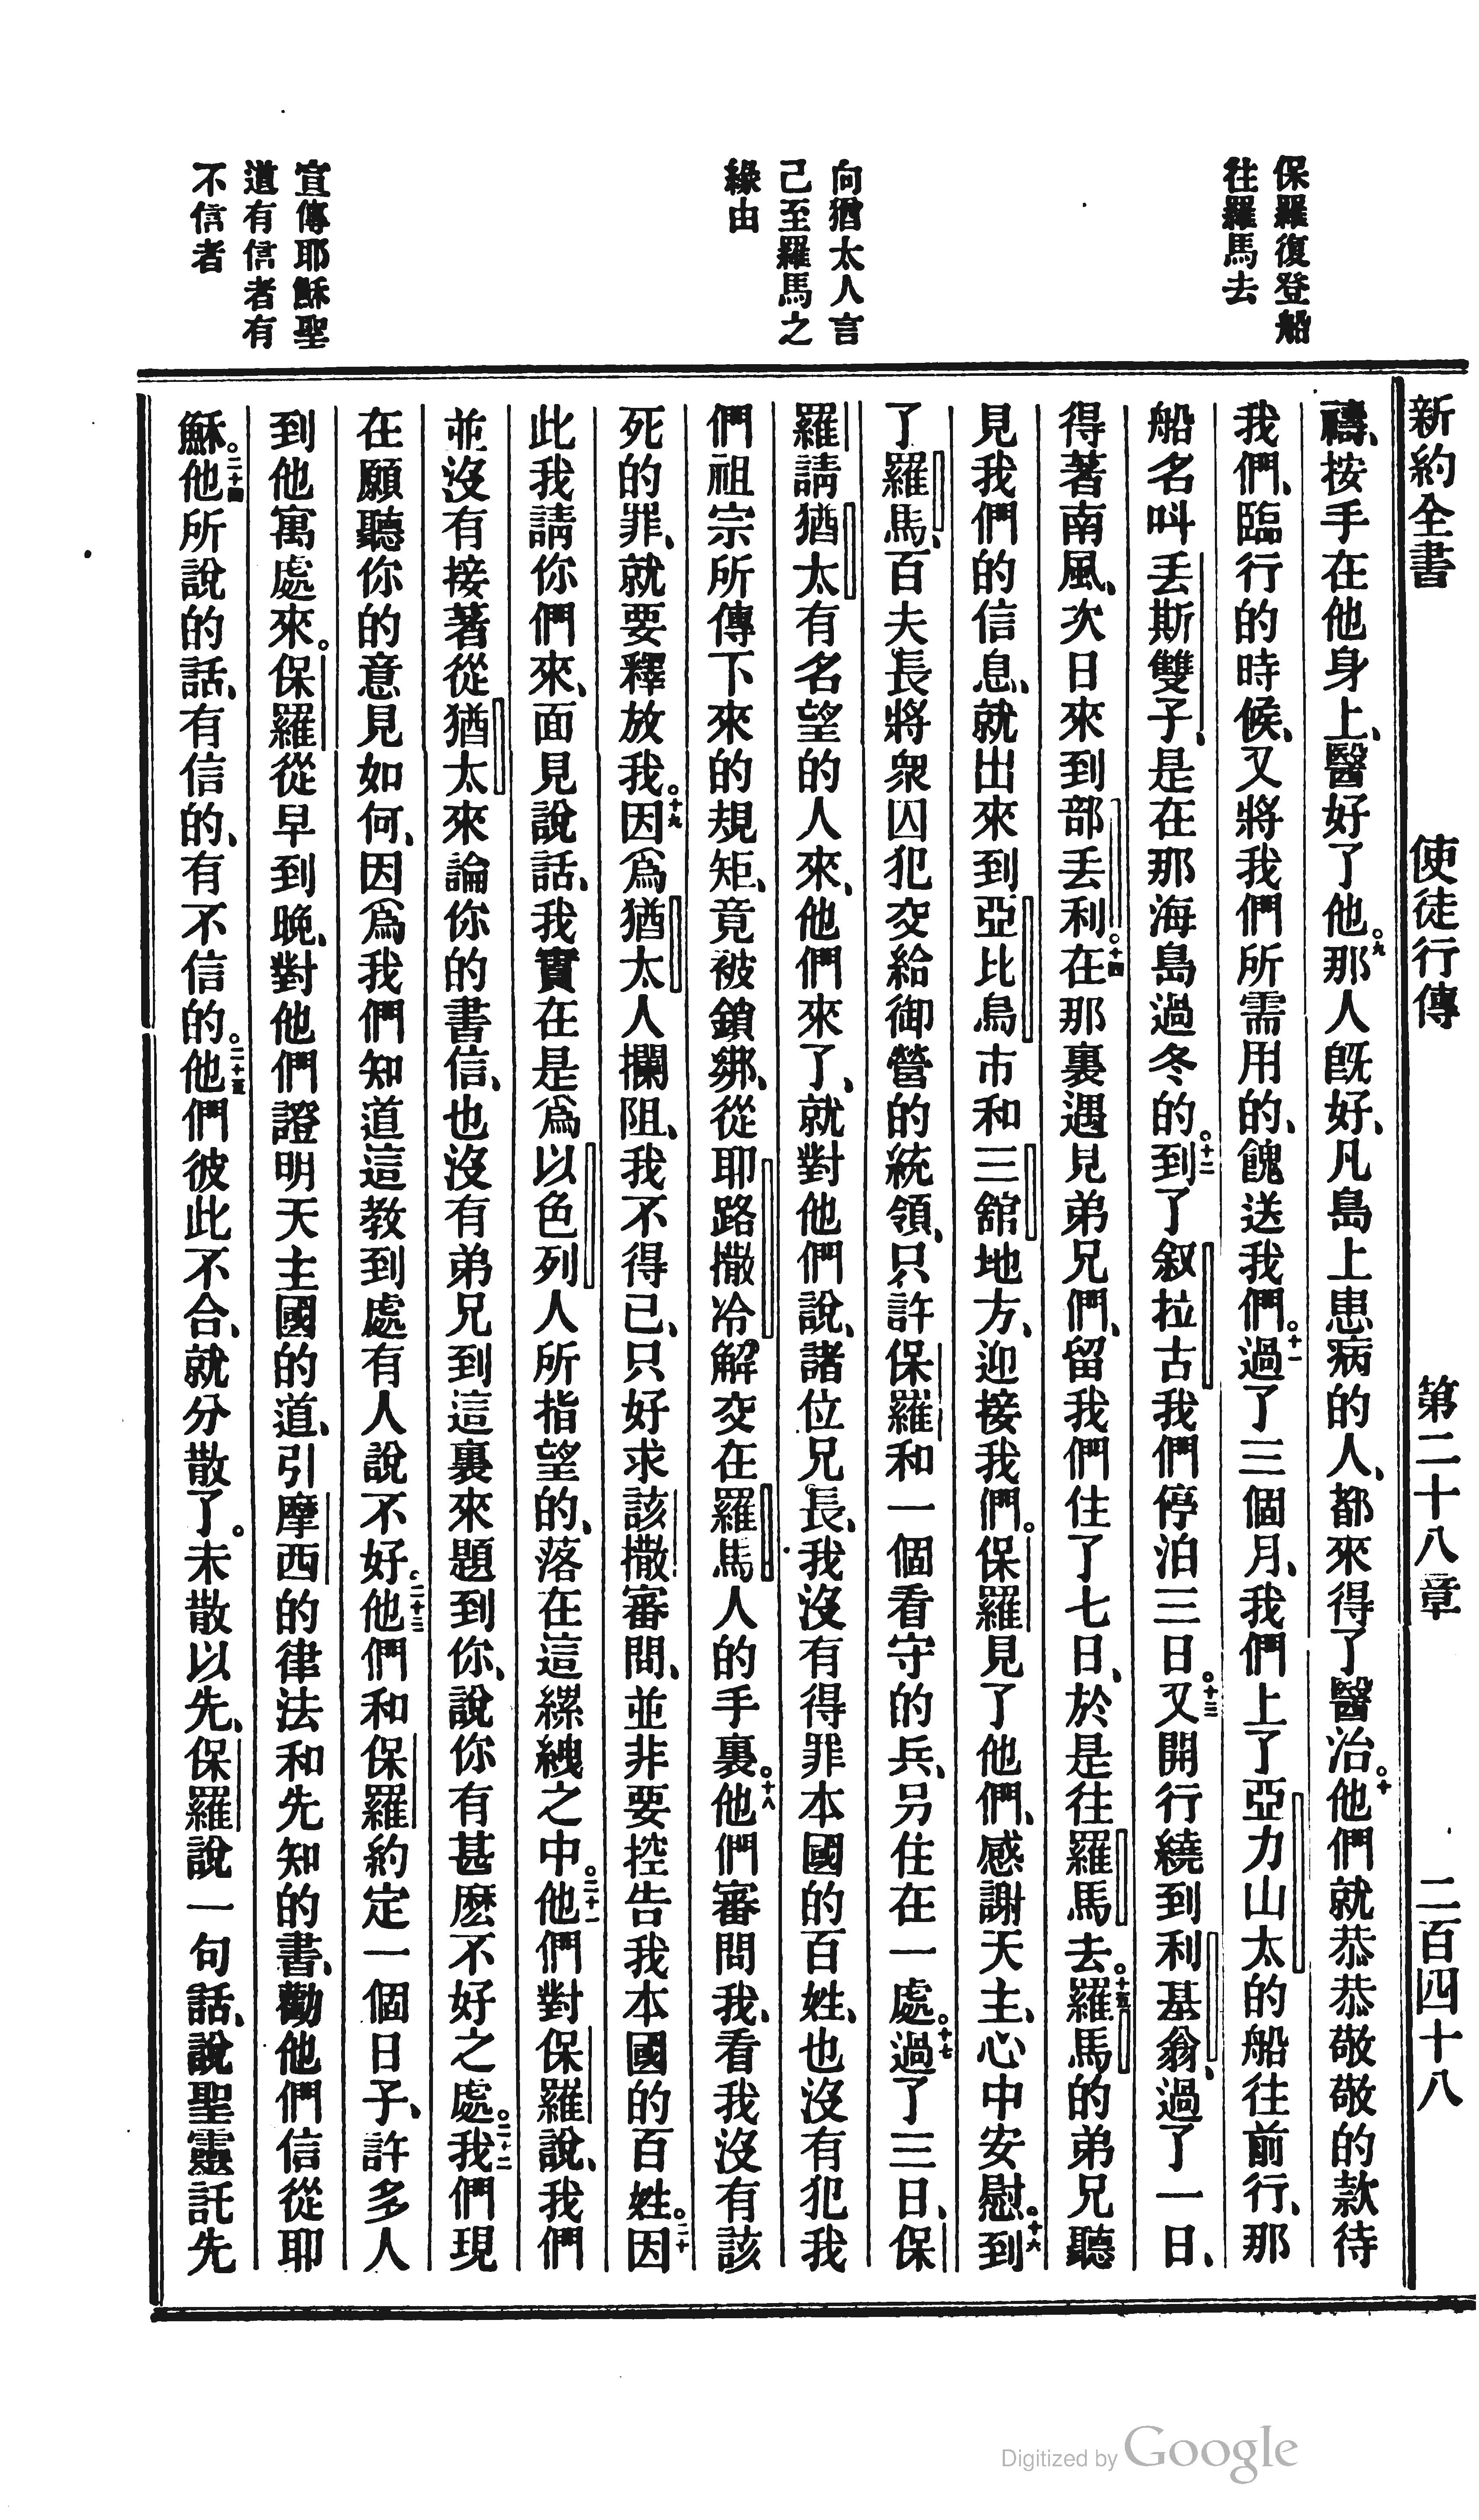 保羅復登船
往羅馬去
向猶太人言
己至羅馬之
緣由
宣傳耶穌聖
道有信者有
不信者
新約全書 使徒行傳 第二十八章 二百四十八
禱、按手在他身上、醫好了他。九那人旣好、凡島上患病的人、都來得了醫治。十他們就恭恭敬敬的款待
我們、臨行的時候、又將我們所需用的、餽送我們。十一過了三個月、我們上了亞力山太的船往前行、那
船名叫丟斯雙子、是在那海島過冬的。十二到了叙拉古我們停泊三日。十三又開行繞到利基翁、過了一日、
得著南風、次日來到部丟利。十四在那裏遇見弟兄們、留我們住了七日、於是往羅馬去。十五羅馬的弟兄聽
見我們的信息、就出來到亞比烏市和三舘地方、迎接我們。保羅見了他們、感謝天主、心中安慰。十六到
了羅馬、百夫長將衆囚犯交給御營的統領、只許保羅和一個看守的兵、另住在一處。十七過了三日、保
羅請猶太有名望的人來、他們來了、就對他們說、諸位兄長、我沒有得罪本國的百姓、也沒有犯我
們祖宗所傳下來的規矩、竟被鎖綁、從耶路撒冷解交在羅馬人的手裏。十八他們審問我、看我沒有該
死的罪、就要釋放我。十九因爲猶太人攔阻、我不得已、只好求該撒審問、並非要控告我本國的百姓。二十因
此我請你們來、面見說話、我實在是爲以色列人所指望的、落在這縲絏之中。二十一他們對保羅說、我們
並沒有接著從猶太來論你的書信、也沒有弟兄到這裏來題到你、說你有甚麽不好之處。二十二我們現
在願聽你的意見如何、因爲我們知道這教到處有人說不好。二十三他們和保羅約定一個日子、許多人
到他寓處來。保羅從早到晚、對他們證明天主國的道、引摩西的律法和先知的書、勸他們信從耶
穌。二十四他所說的話、有信的、有不信的。二十五他們彼此不合、就分散了。未散以先、保羅說一句話、說聖靈託先
Digitized by Google